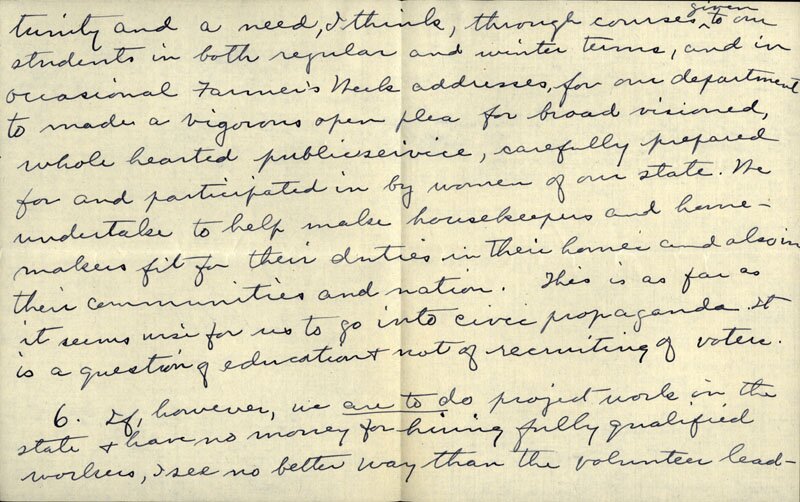 tunity and a need, I think, through courses given to our
students in both regular and winter terms, and in
occasional Farmer's Week addresses, for our department
to made a vigorous open plea for broad visioned,
whole hearted public service, carefully prepared
for and participated in by women of our state. We
undertake to help make housekeepers and home-
makers fit for their duties in their homes and also in
their communities and nation. This is as far as
it seems wise for us to go into civic propaganda. It
is a question of education & not of recruiting of voters.
6. If, however, we are to do project work in the
state & have no money for hiring fully qualified
workers, I see no better way than the volunteer lead-